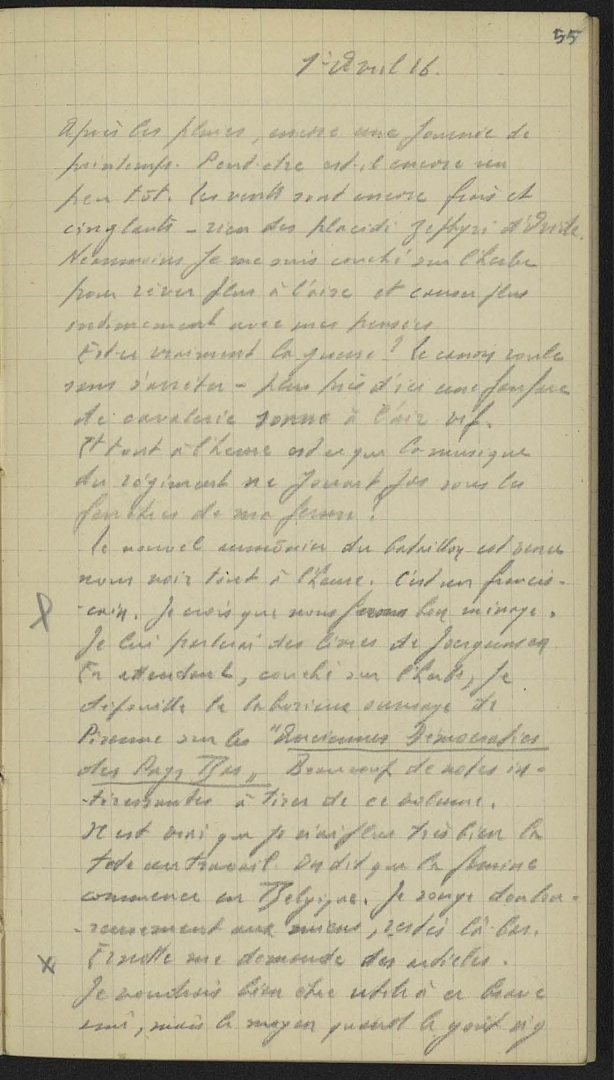 55
1er Avril 16.
Après les pluies, encore une journée de
printemps. Peut-être est-il encore un
peu tôt. Les vents sont encore frais et
cinglants – rien des placidi zephyri d'Ovide.
Néanmoins je me suis couché sur l'herbe
pour rêver plus à l'aise et causer plus
intimement avec mes pensées
Est-ce vraiment la guerre ? Le canon roule
sans s'arrêter – plus près d'ici une fanfare
de cavalerie sonne à l'air vif.
Et tout à l'heure est-ce que la musique
du régiment ne jouait pas sous les
fenêtres de ma ferme ?
Le nouvel aumônier du bataillon est venu
nous voir tout à l'heure. C'est un francis-
-cain. Je crois que nous ferons bon ménage.
Je lui parlerai des livres de Joergensen
En attendant, couché sur l'herbe, je
dépouille le laborieux ouvrage de
Pirenne sur les "Anciennes Démocraties
des Pays Bas„ Beaucoup de notes in-
-téressantes à tirer de ce volume.
Il est vrai que je n'ai plus très bien la
tête au travail. On dit que la famine
commence en Belgique. Je songe doulou-
-reusement aux miens, restés là-bas.
me demande des articles.
Je voudrais bien être utile à ce brave
ami, mais le moyen quand le goût n'y